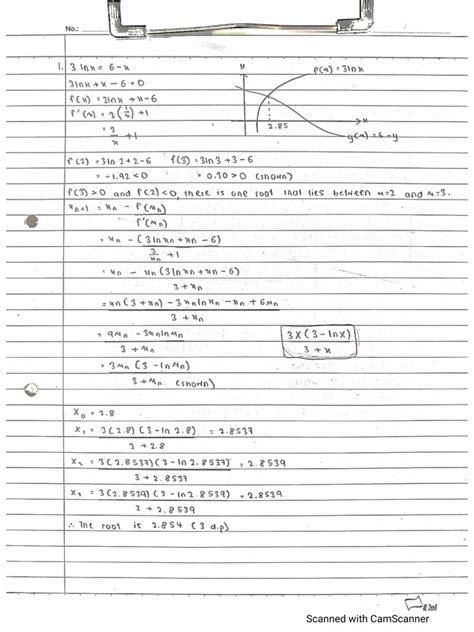 No.:
1. 3 ln x = 6 - x
3lnx + x - 6 = 0
f(x) = 3lnx + x - 6
f'(x) = 3(1/x) + 1
= 3/x + 1
y
f(x) = 3lnx
x
2.85
g(x) = 6 - y
f(2) = 3ln 2 + 2 - 6 f(3) = 3ln 3 + 3 - 6
= -1.92 < 0 = 0.30 > 0 (shown)
f(3) > 0 and f(2) < 0, there is one root that lies between x=2 and x=3.
x_{n+1} = x_n - f(x_n)/f'(x_n)
= x_n - (3ln x_n + x_n - 6)/(3/x_n + 1)
= x_n - x_n(3ln x_n + x_n - 6)/(3 + x_n)
= x_n(3 + x_n) - 3x_n ln x_n - x_n + 6x_n / 3 + x_n
= 9x_n - 3x_n ln x_n / 3 + x_n
3X(3 - lnX) / 3 + x
= 3x_n (3 - ln x_n) / 3 + x_n (shown)
X_0 = 2.8
X_1 = 3(2.8)(3 - ln 2.8) / 3 + 2.8 = 2.8537
X_2 = 3(2.8537)(3 - ln 2.8537) / 3 + 2.8537 = 2.8539
X_3 = 3(2.8539)(3 - ln 2.8539) / 3 + 2.8539 = 2.8539
∴ The root is 2.854 (3 d.p)
Scanned with CamScanner